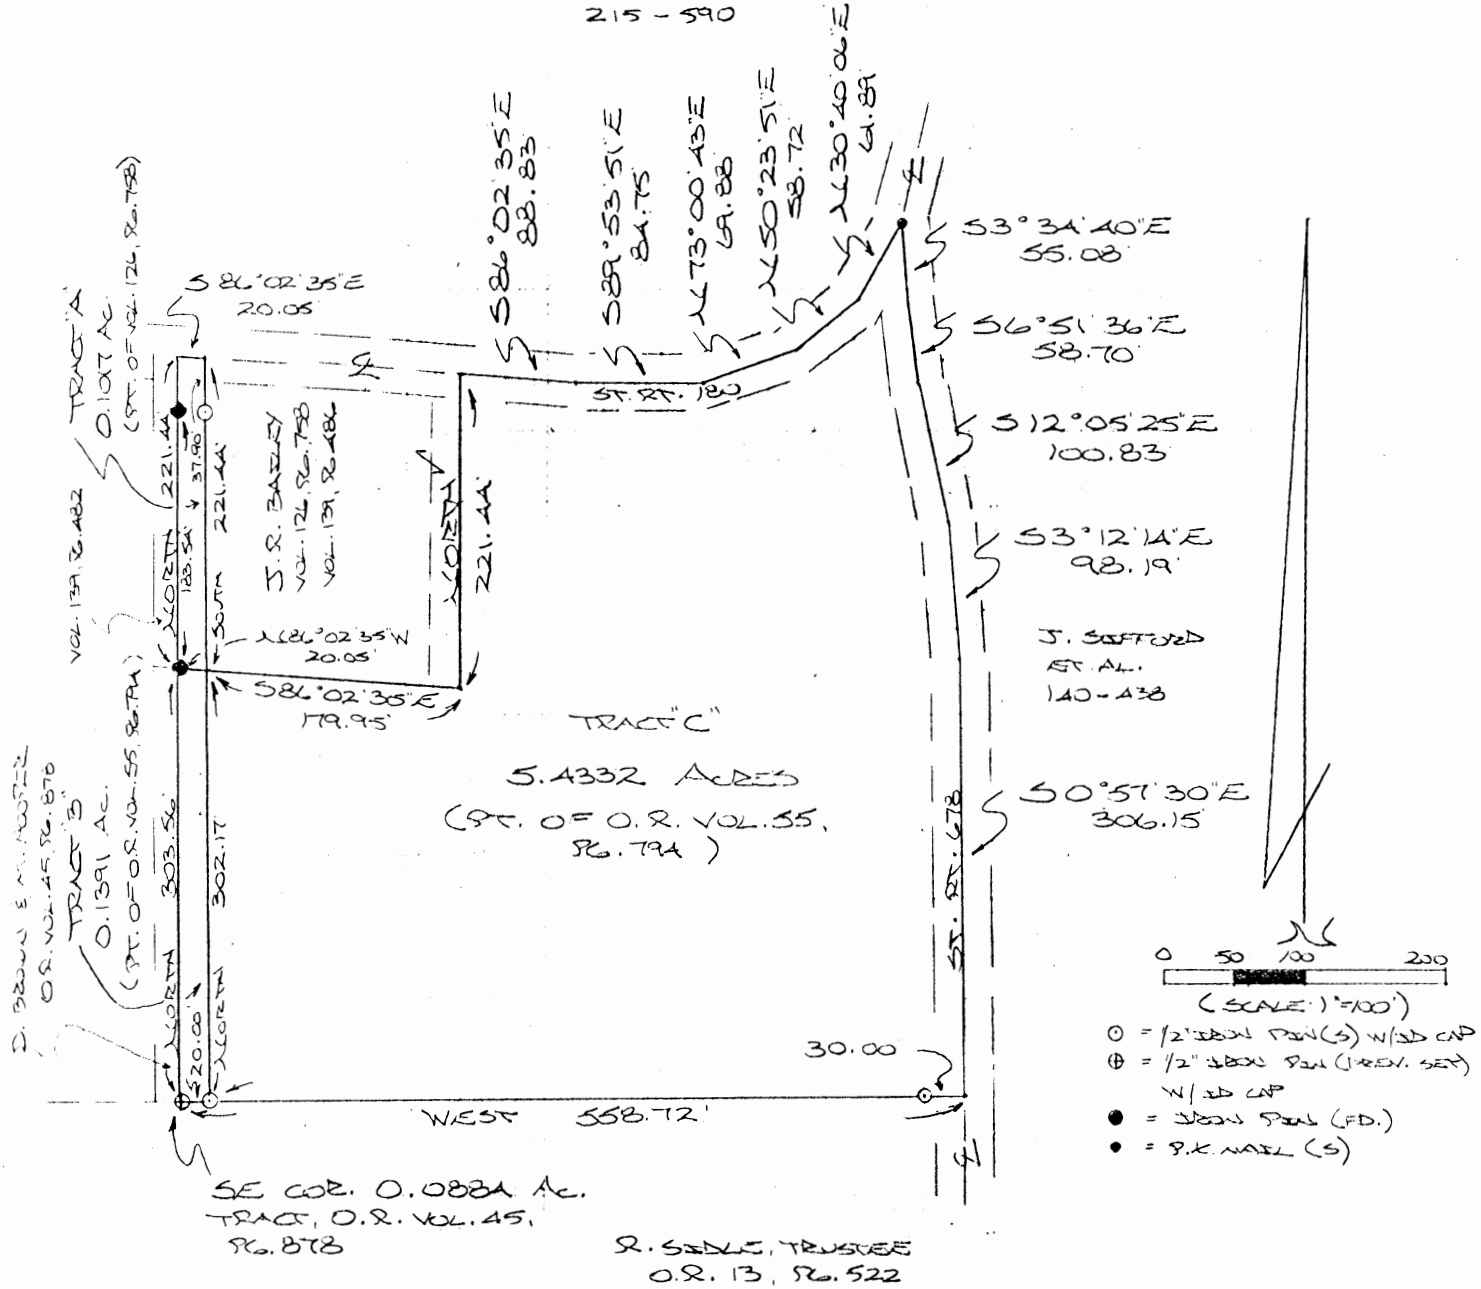 215 - 590
S86°02'35"E
88.83
S89°53'51"E
84.75
N73°00'43"E
69.88
N50°23'51"E
58.72
N30°40'06"E
61.89
S3°34'40"E
55.08'
S6°51'36"E
58.70'
S12°05'25"E
100.83
S3°12'14"E
98.19'
J. SIFFORD
ET. AL.
140-438
S0°57'30"E
306.15'
S86°02'35"E
20.05'
TRACT "A"
0.1017 AC.
(PT. OF VOL. 126, PG. 758)
VOL. 139, PG. 482
NORTH 221.44'
183.54'
37.90'
SOUTH 221.44'
J.R. BAILEY
VOL. 126, PG. 758
VOL. 139, PG. 486
NORTH
221.44'
ST. RT. 180
N86°02'35"W
20.05'
S86°02'35"E
179.95'
TRACT "C"
5.4332 ACRES
(PT. OF O.R. VOL. 55,
PG. 794)
D. BROWN & M.
O.R. VOL. 45, PG. 878
TRACT "B"
0.1391 AC.
(PT. OF O.R. VOL. 55, PG. 794)
NORTH 303.56'
NORTH 302.17'
S20.00'
ST. RT. 678
30.00
WEST 558.72'
SE COR. 0.0884 AC.
TRACT, O.R. VOL. 45,
PG. 878
R. SIDLE, TRUSTEE
O.R. 13, PG. 522
N
0 50 100 200
(SCALE: 1"=100')
= 1/2" IRON PIN(S) W/ID CAP
= 1/2" IRON PIN (PREV. SET)
W/ ID CAP
= IRON PIN (FD.)
= P.K. NAIL (S)